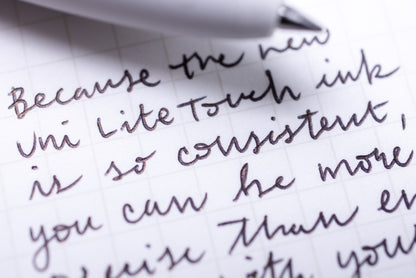 Because the new
uni Lite Touch ink
is so consistent,
you can be more
than
with